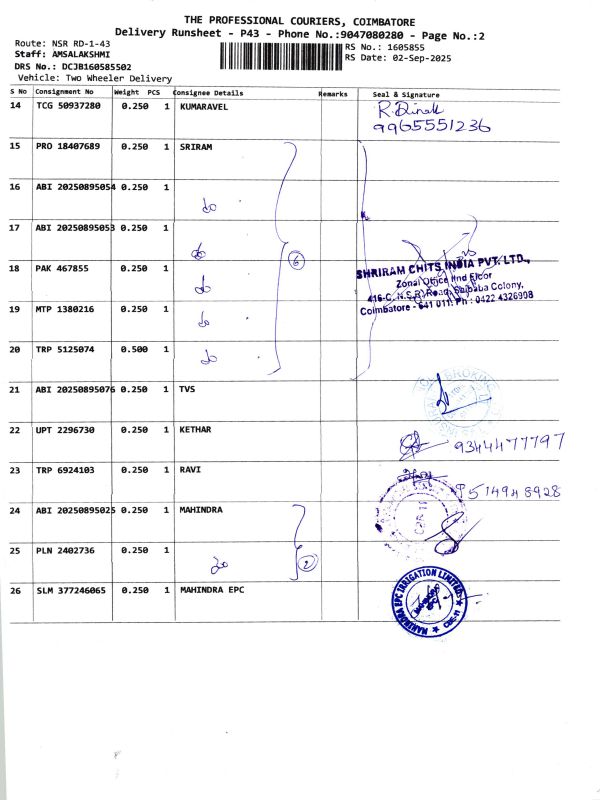 THE PROFESSIONAL COURIERS, COIMBATORE
Delivery Runsheet - P43 - Phone No.:9047080280 - Page No.:2
Route: NSR RD-1-43
RS No.: 1605855
Staff: AMSALAKSHMI
RS Date: 02-Sep-2025
DRS No.: DCJB160585502
Vehicle: Two Wheeler Delivery
S No Consignment No Weight PCS Consignee Details Remarks Seal & Signature
14 TCG 50937280 0.250 1 KUMARAVEL R.
9965551236
15 PRO 18407689 0.250 1 SRIRAM
16 ABI 20250895054 0.250 1 do
17 ABI 20250895053 0.250 1 do
6
18 PAK 467855 0.250 1 do
SHRIRAM CHITS INDIA PVT. LTD.,
Zonal Office IInd Floor
416-C, N.S.R. Road, Saibaba Colony,
Coimbatore - 641 011. Ph : 0422 4326998
19 MTP 1380216 0.250 1 do
20 TRP 5125074 0.500 1 do
21 ABI 20250895076 0.250 1 TVS
BROKING
22 UPT 2296730 0.250 1 KETHAR 9344477797
23 TRP 6924103 0.250 1 RAVI 9514948928
24 ABI 20250895025 0.250 1 MAHINDRA
CBE-11
25 PLN 2402736 0.250 1 do 2
26 SLM 377246065 0.250 1 MAHINDRA EPC
MAHINDRA EPC IRRIGATION LIMITED
MAHINDRA
EPC
CBE-11